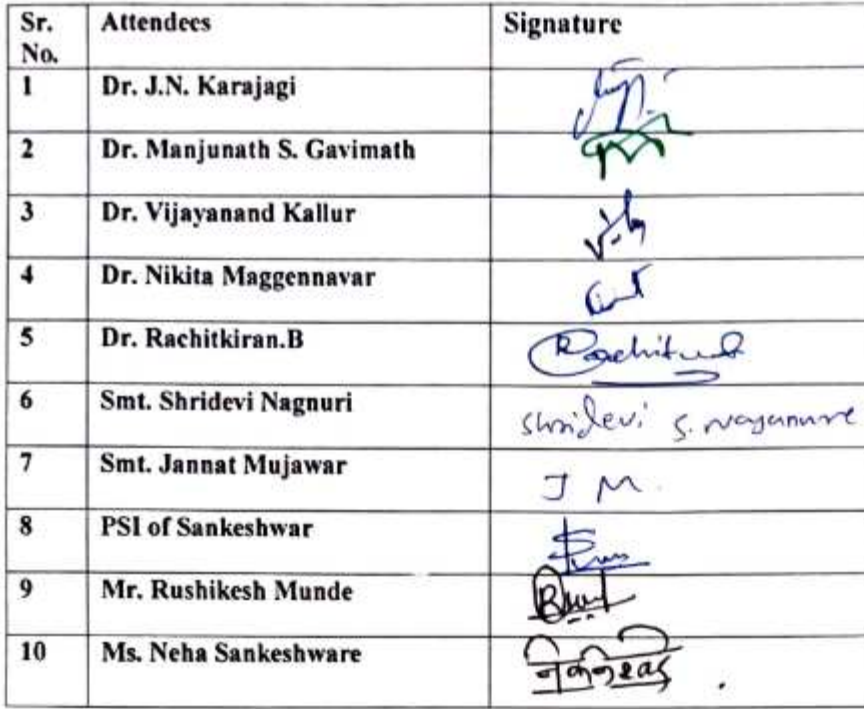 Sr. No. Attendees Signature
1 Dr. J.N. Karajagi
2 Dr. Manjunath S. Gavimath
3 Dr. Vijayanand Kallur
4 Dr. Nikita Maggennavar
5 Dr. Rachitkiran.B
6 Smt. Shridevi Nagnuri Shridevi S.
7 Smt. Jannat Mujawar J M.
8 PSI of Sankeshwar
9 Mr. Rushikesh Munde
10 Ms. Neha Sankeshware